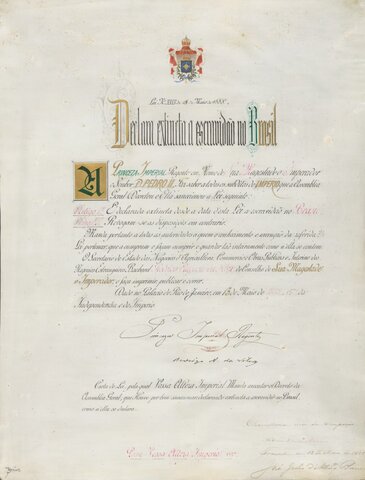 Declara extincta a escravidão no Brasil
A Princeza Imperial Regente em Nome de Sua Magestade o Imperador
o Senhor D. PEDRO II, Faz saber a todos os subditos do IMPERIO que a Assembléa
Geral Decretou e Ella sanccionou a Lei seguinte:
É declarada extincta desde a data desta Lei a escravidão no Brazil.
Revogam-se as disposições em contrario.
Manda portanto a todas as autoridades a quem o conhecimento e execução da referida Lei
pertencer, que a cumpram e façam cumprir e guardar tão inteiramente como nella se contem.
O Secretario de Estado dos Negocios d'Agricultura, Commercio e Obras Publicas e Interino dos
Negocios Estrangeiros, Bacharel do Conselho de Sua Magestade
o Imperador, o faça imprimir, publicar e correr.
Dado no Palacio do Rio de Janeiro, em 13 de Maio de
Independencia e do Imperio.
Princeza Imperial Regente
Rodrigo A. da Silva
Carta de Lei, pela qual Vossa Alteza Imperial Manda executar o Decreto da
Assembléa Geral, que Houve por bem sanccionar, declarando extincta a escravidão no Brazil,
como nella se declara.
Para Vossa Alteza Imperial ver.